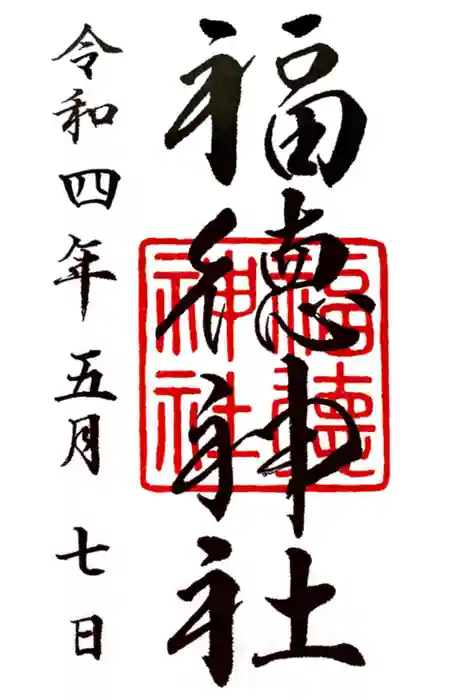 福徳神社
福徳神社
令和四年五月七日